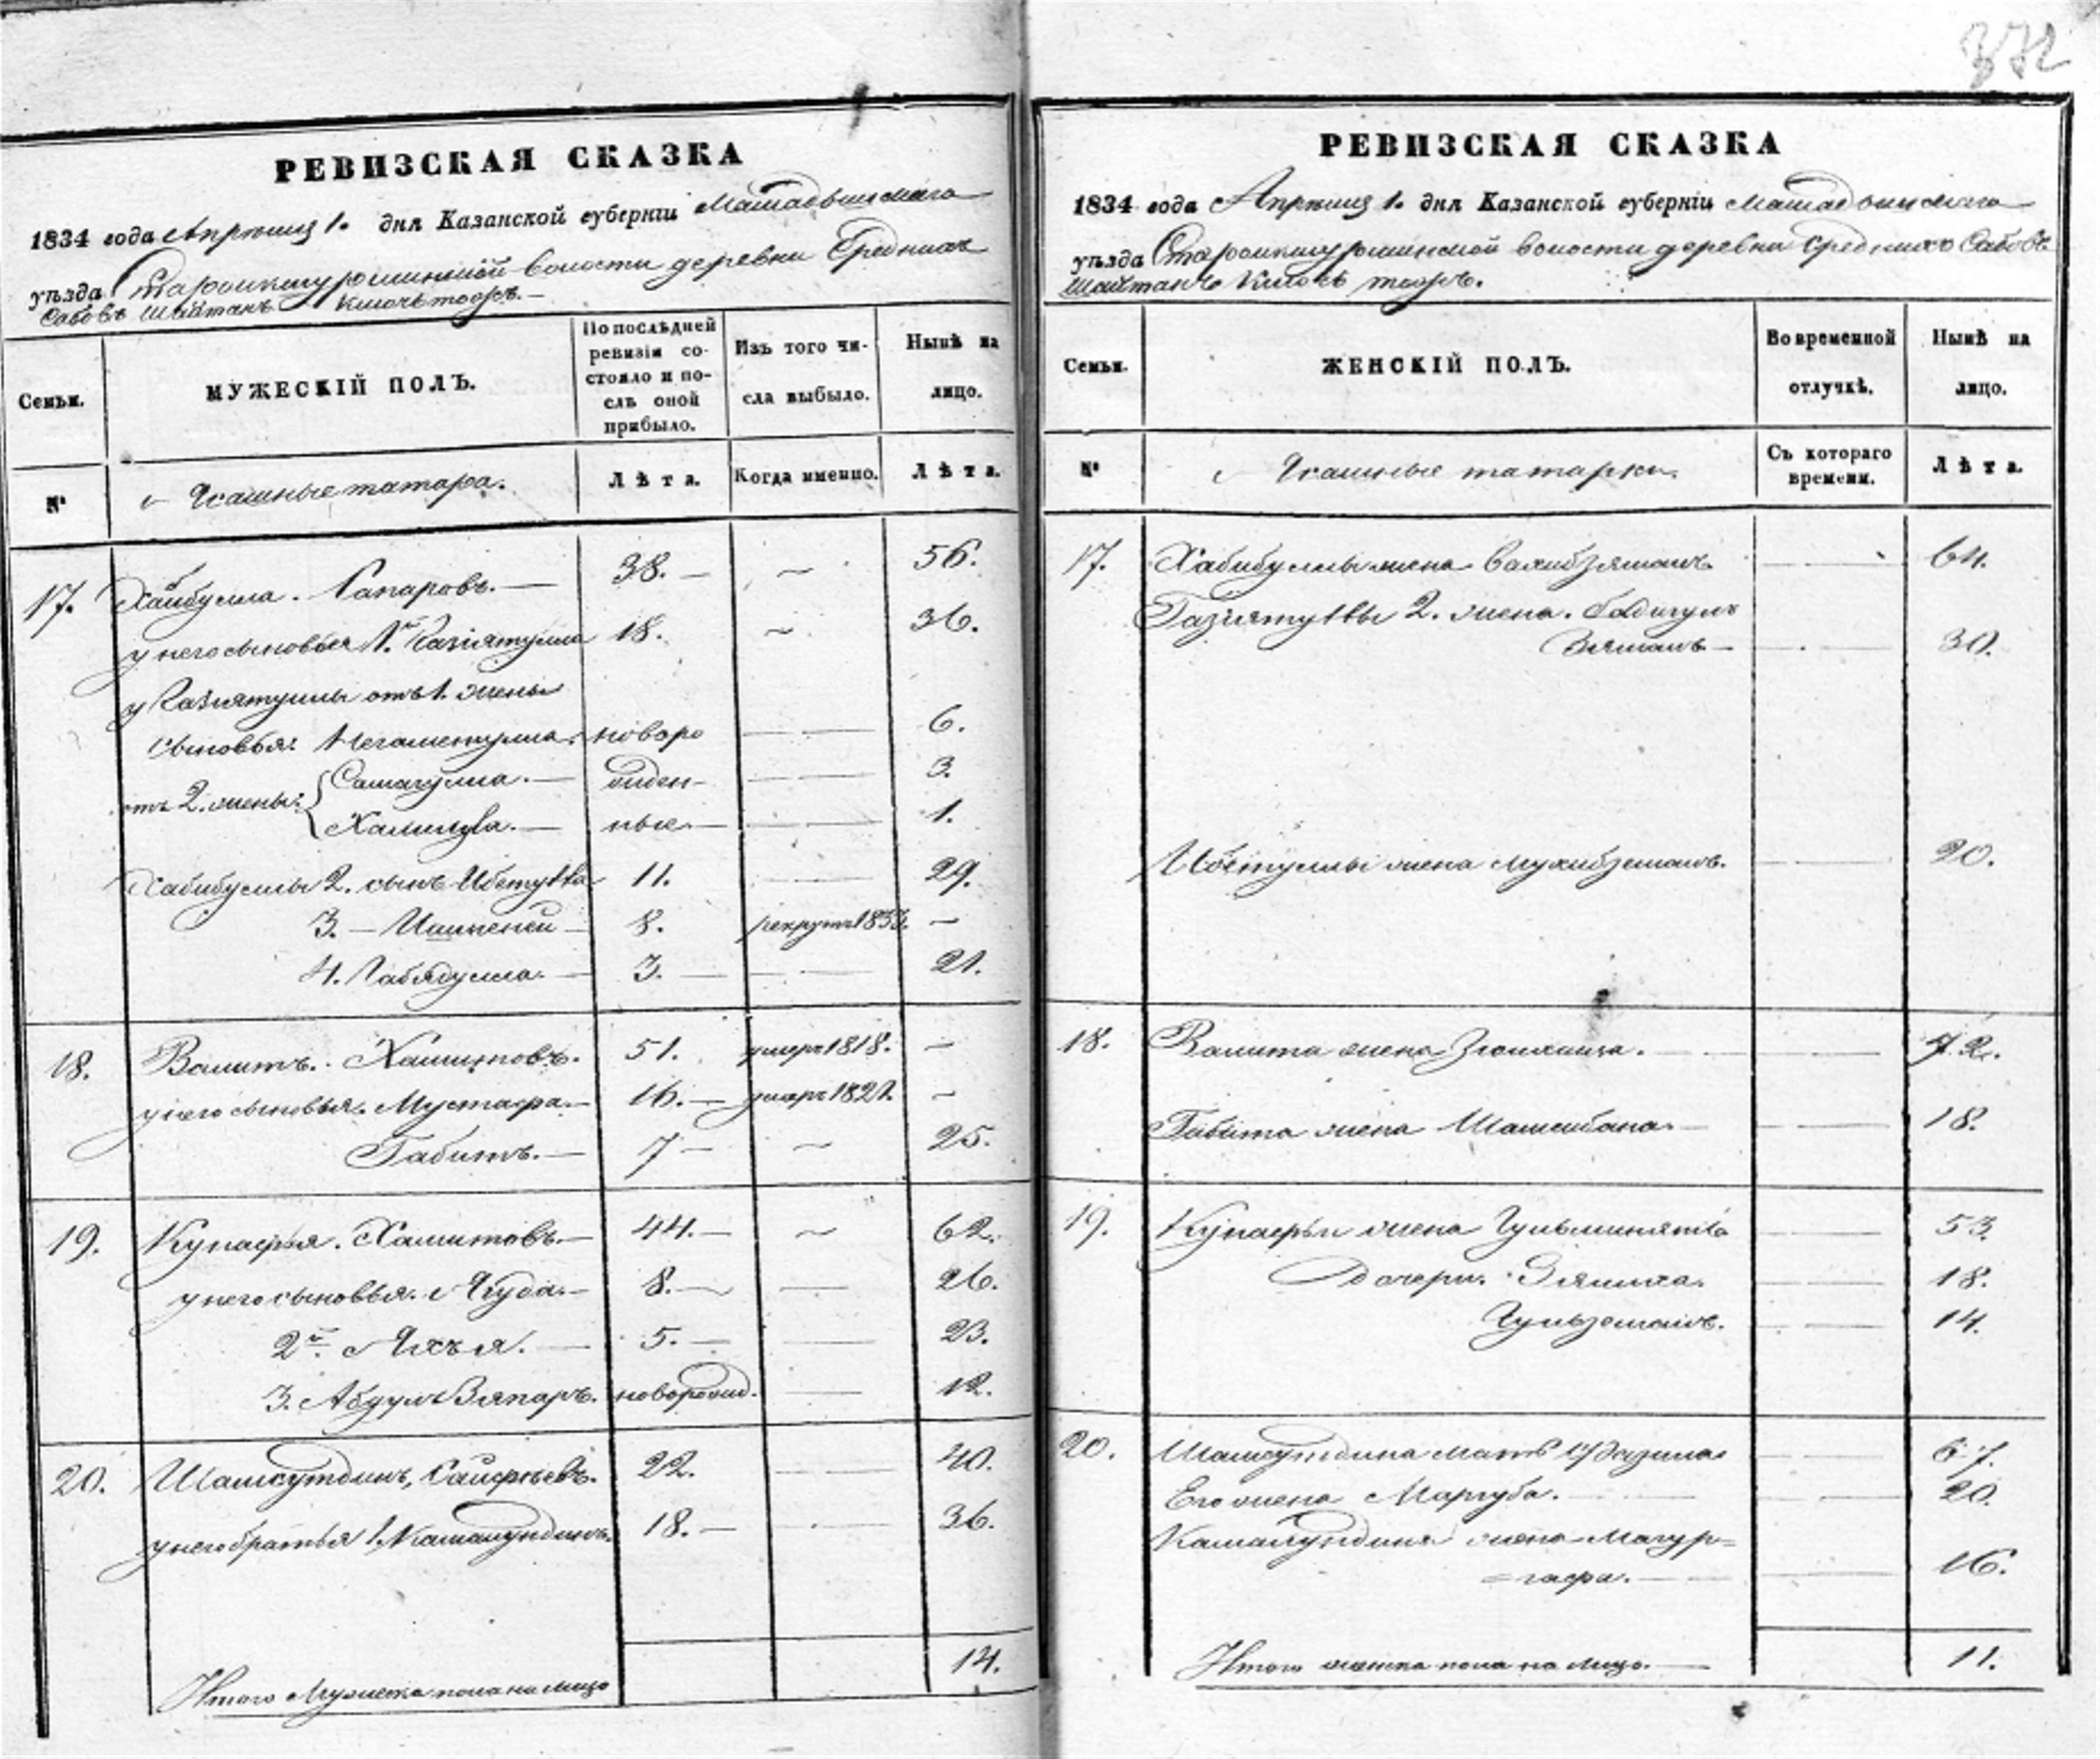 372
РЕВИЗСКАЯ СКАЗКА
1834 года Апрѣля 1. дня Казанской губернiи Мамадышскаго
уѣзда Староикшурминской волости деревни Среднихъ
Сабовъ Шайтанъ Ключь тожъ.
Семьи. МУЖЕСКIЙ ПОЛЪ. По послѣдней ревизiи состояло и послѣ оной прибыло. Изъ того числа выбыло. Нынѣ на лицо.
№ Ясашные татара. Лѣта. Когда именно. Лѣта.
17. Хабибулла 38. — 56.
у него сыновья 1й Газiятулла 18. 36.
у Газiятуллы отъ 1. жены
сыновья: Негаметулла. новоро — 6.
отъ 2. жены: — жден- — 3.
Халиулла. — ные — 1.
Хабибуллы 2. сынъ Ибетулла 11. — 29.
3. — 8. рекрутъ 1833. —
4. Габядулла. — 3. — 21.
18. Валитъ. Хамитовъ. 51. умеръ 1818. —
у него сыновья. Мустафа. — 16. — умеръ 1821. —
Габитъ. — 7 — 25.
19. Хамитовъ. — 44. — 62.
у него сыновья. Якуба. — 8. — 26.
2й. Яхъя. — 5. — 23.
3. Абдулъ — новорожд. — 12.
20. Шамсутдинъ, 22. — 40.
у него братья 1, Камалутдинъ. 18. — 36.
Итого Мужеска пола на лицо 14.
РЕВИЗСКАЯ СКАЗКА
1834 года Апрѣля 1. дня Казанской губернiи Мамадышскаго
уѣзда Староикшурминской волости деревни Среднихъ Сабовъ
Шайтанъ Ключь тожъ.
Семьи. ЖЕНСКIЙ ПОЛЪ. Во временной отлучкѣ. Нынѣ на лицо.
№ Ясашные татарки. Съ котораго времени. Лѣта.
17. Хабибуллы жена — 64.
Газiятуллы 2. жена. Бадигул
зямалъ — 30.
Ибетуллы жена — 20.
18. Валита жена — 72.
Габита жена Шамсибана. — 18.
19. жена — 53.
дочери. — 18.
— 14.
20. Шамсутдина мать — 67.
Его жена Маргуба. — 20.
Камалутдина жена Магур=
=гафа. — 16.
Итого женска пола на лицо. — 11.